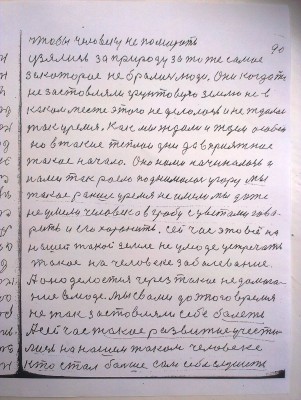 чтобы человеку не помирать
90
взялись за природу за то же самое
за которое не брались люди. Они когда то
не заставляли грунтовую землю не в
каком месте этого не делалось и не ждали
такое время. Как мы ждали и ждем особен
но в такие теплые дни до варияжное
такое начало. Оно нами начиналось а
нами тек роело поднималось угору мы
такое раньше время не имели мы даже
не умели человека в гробу с цветами гово
реть и его хоронить. Сей час это всё на
нашей такой земле не имеет устречать
такое на человеке заболевание.
А оно делается через такие недомога
ние в люде. Мы с вами до этого время
не так заставляли себе болеть
А сей час такое развитие участи
лися на нашем таком человеке
кто стал больше сам себя слушать